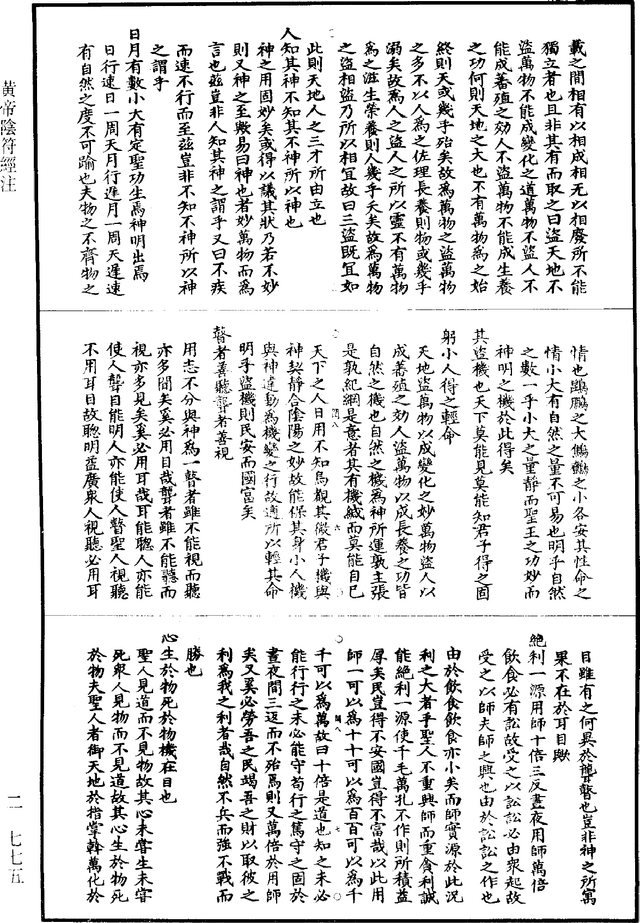 黃帝陰符經注
二 七七五
載之間相有以相成相无以相廢所不能
獨立者也且非其有而取之曰盜天地不
盜萬物不能成變化之道萬物不盜人不
能成蕃殖之効人不盜萬物不能成生養
之功何則天地之大也不有萬物為之始
終則天或幾乎殆矣故為萬物之盜萬物
之多不以人為之佐理長養則物或幾乎
溺矣故為人之盜人之所以靈不有萬物
為之滋生榮養則人幾乎夭矣故為萬物
之盜相盜乃所以相宜故曰三盜既宜如
此則天地人之三才所由立也
人知其神不知其不神所以神也
神之用固妙矣或得以議其狀乃若不妙
則又神之至歟易曰神也者妙萬物而為
言也茲豈非人知其神之謂乎又曰不疾
而速不行而至茲豈非不知不神所以神
之謂乎
日月有數小大有定聖功生焉神明出焉
日行速日一周天月行遲月一周天遲速
有自然之度不可踰也夫物之不齊物之
情也鵾鵬之大鷦鷯之小各安其性命之
情小大有自然之量不可易也明乎自然
之數一乎小大之量靜而聖王之功妙而
神明之機於此得矣
其盜機也天下莫能見莫能知君子得之固
躬小人得之輕命
天地盜萬物以成變化之妙萬物盜人以
成蕃殖之効人盜萬物以成長養之功皆
自然之機也自然之機為神所運孰主張
是孰紀綱是意者其有機緘而莫能自已
天下之人日用不知焉觀其微君子機與
神契靜合陰陽之妙故能保其身小人機
與神違動為機變之行故適所以輕其命
明乎盜機則民安而國富矣
瞽者善聽聾者善視
用志不分與神為一瞽者雖不能視而聽
亦多聞矣奚必用目哉聾者雖不能聽而
視亦多見矣奚必用耳哉耳能聰人亦能
使人聾目能明人亦能使人瞽聖人視聽
不用耳目故聰明益廣衆人視聽必用耳
目雖有之何異於聾瞽也豈非神之所寓
果不在於耳目歟
絕利一源用師十倍三反晝夜用師萬倍
飲食必有訟故受之以訟訟必由衆起故
受之以師夫師之興也由於訟訟之作也
由於飲食飲食亦小矣而師實源於此況
利之大者乎聖人不重興師而重貪利誠
能絕利一源使千毛萬孔不作則所積益
厚矣民豈得不安國豈得不富哉以此用
師一可以為十十可以為百百可以為千
千可以為萬故曰十倍是道也知之未必
能行行之未必能守苟行之篤守之固於
晝夜間三返而不殆焉則又萬倍於用師
矣又奚必勞吾之民竭吾之財以取彼之
利為我之利者哉自然不兵而強不戰而
勝也
心生於物死於物機在目也
聖人見道而不見物故其心未嘗生未嘗
死衆人見物而不見道故其心生於物死
於物夫聖人者御天地於指掌斡萬化於